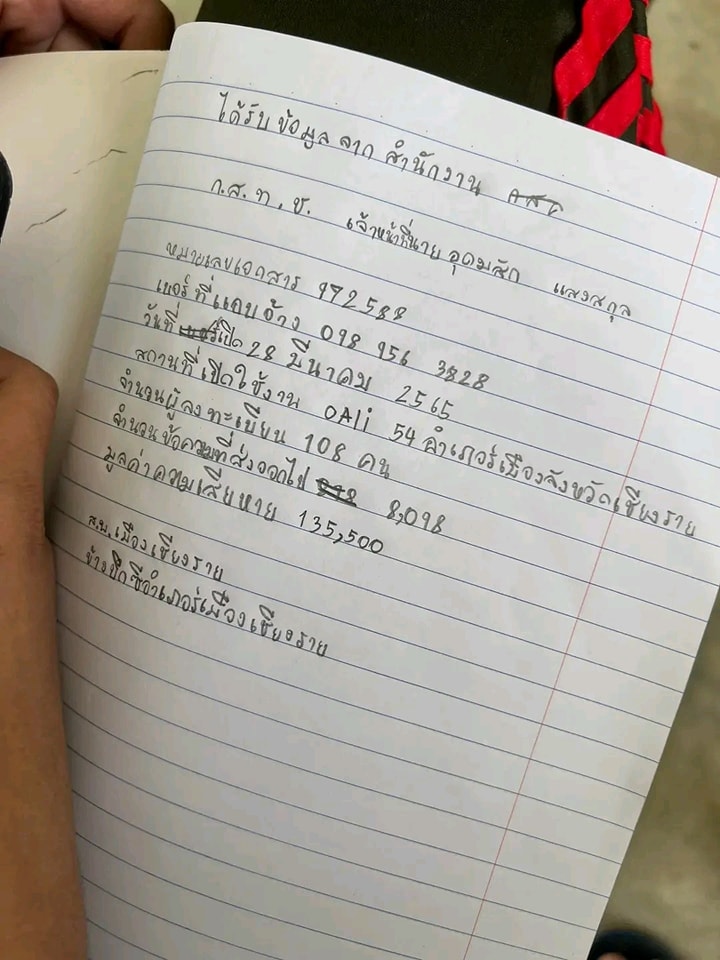 ได้รับ ข้อมูล จาก สำนักงาน
ก.ส.ท.ช. เจ้าหน้าที่นาย อุดมสัก แสงสกุล
หมายเลขเอกสาร 972588
เบอร์ที่แอบอ้าง 098 956 3828
วันที่เปิด 28 มีนาคม 2565
สถานที่เปิดใช้งาน OAli 54 อำเภอร์เมืองจังหวัดเชียงราย
จำนวนผู้ลงทะเบียน 108 คน
จำนวนข้อความที่ส่งออกไป 8,098
มูลค่าความเสียหาย 135,500
ส.พ.เมืองเชียงราย
ข้างบิ๊กซีอำเภอร์เมืองเชียงราย